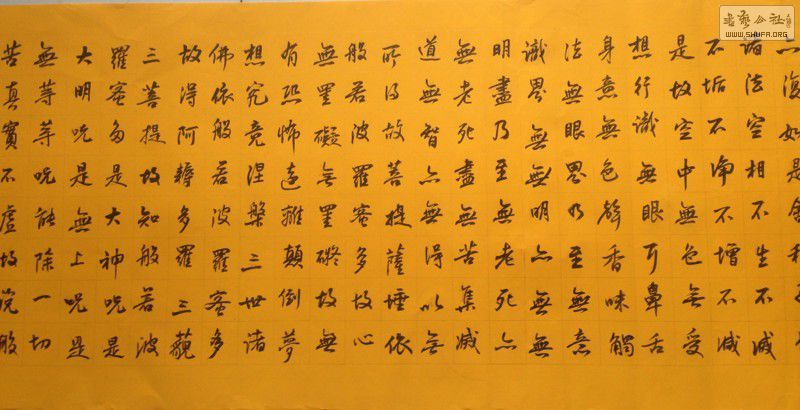 復如是舍利
諸法空相不生不滅
不垢不淨不增不減
是故空中無色無受
想行識無眼耳鼻舌
身意無色聲香味觸
法無眼界乃至無意
識界無無明亦無無
明盡乃至無老死亦
無老死盡無苦集滅
道無智亦無得以無
所得故菩提薩埵依
般若波羅蜜多故心
無罣礙無罣礙故無
有恐怖遠離顛倒夢
想究竟涅槃三世諸
佛依般若波羅蜜多
故得阿耨多羅三藐
三菩提故知般若波
羅蜜多是大神咒是
大明咒是無上咒是
無等等咒能除一切
苦真實不虛故說般
書藝公社
WWW.SHUFA.ORG